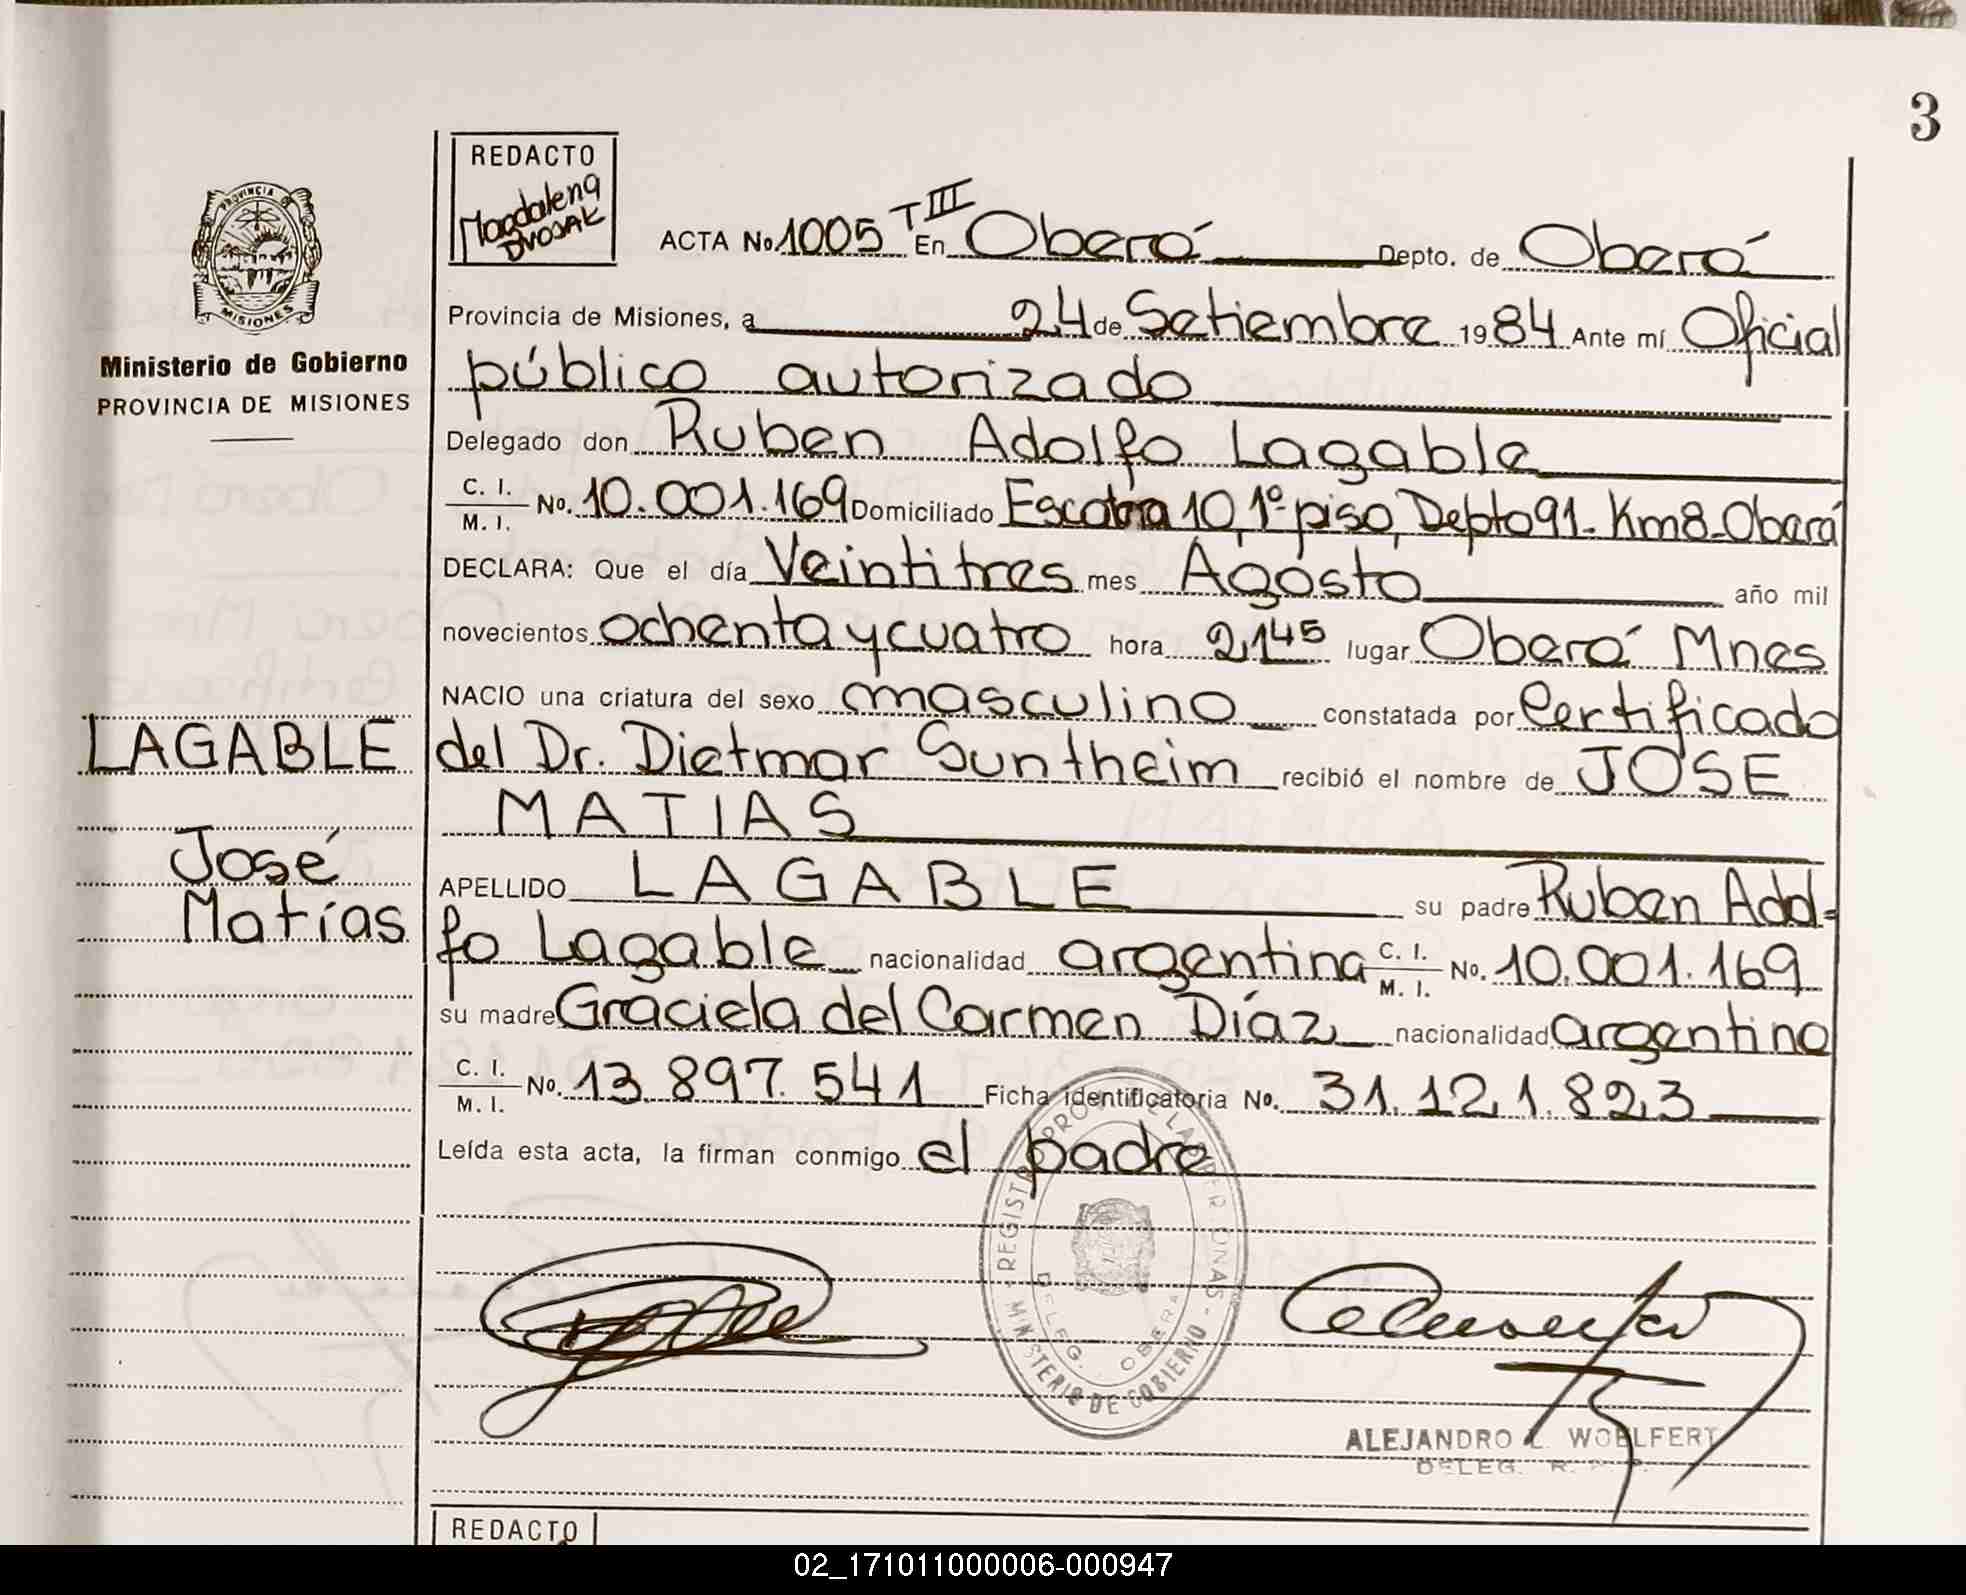 3
REDACTO
Magdalena
DVOSAK
ACTA No 1005 TIII En Oberá Depto. de Oberá
Provincia de Misiones, a 24 de Setiembre 1984 Ante mí Oficial
público autorizado
Delegado don Ruben Adolfo Lagable
C. I. / M. I. No. 10.001.169 Domiciliado 10, 1º piso, Depto 91- Km 8- Oberá
DECLARA: Que el día Veintitres mes Agosto año mil
novecientos ochenta y cuatro hora 21 45 lugar Oberá Mnes
NACIO una criatura del sexo masculino constatada por Certificado
del Dr. Dietmar Suntheim recibió el nombre de JOSE
MATIAS
APELLIDO LAGABLE su padre Ruben Adol=
fo Lagable nacionalidad argentina C. I. / M. I. No. 10.001.169
su madre Graciela del Carmen Díaz nacionalidad argentina
C. I. / M. I. No. 13.897.541 Ficha identificatoria No. 31.121.823
Leída esta acta, la firman conmigo el padre
PROVINCIA
MISIONES
Ministerio de Gobierno
PROVINCIA DE MISIONES
LAGABLE
José
Matías
MINISTERIO DE GOBIERNO
DELEG. OBERA
ALEJANDRO L. WOELFERT
DELEG. R.
REDACTO
02_171011000006-000947